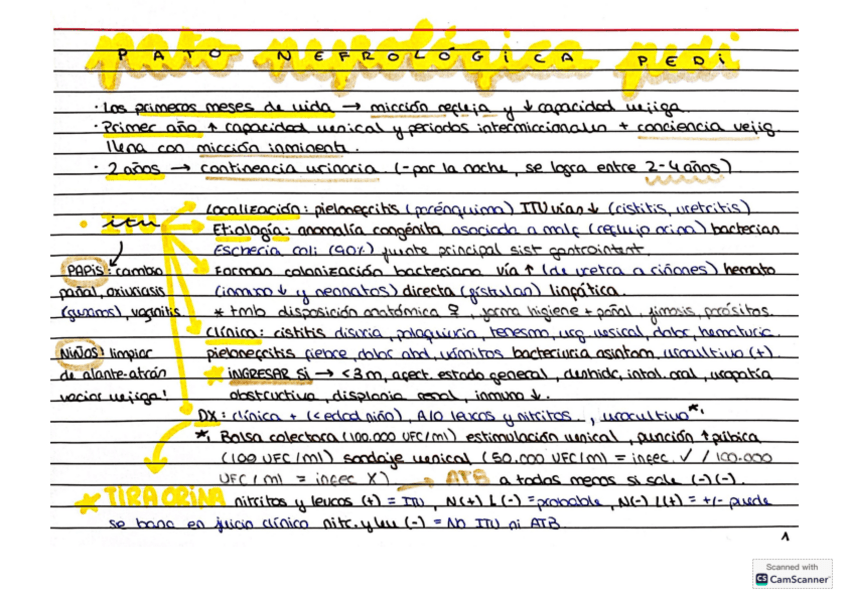 PATO NEFROLÓGICA PEDI
· Los primeros meses de vida → micción refleja y ↓ capacidad vejiga.
· Primer año ↑ capacidad vesical y periodos intermiccionales + conciencia vejig.
llena con micción inminente.
· 2 años → continencia urinaria (- por la noche, se logra entre 2-4 años)
· itu
Localización: pielonefritis (parénquima) ITU vías ↓ (cistitis, uretritis)
Etiología: anomalía congénita asociada a malf (reflujo orina) bacterian
Escheria coli (90%) fuente principal sist gastrointest.
PAPIS: cambio
pañal, oxiuriasis
(gusanos), vaginitis
Formas colonización bacteriana vía ↑ (de uretra a riñones) hemato
(inmuno ↓ y neonatos) directa (fístulas) linfática.
* tmb disposición anatómica ♀, forma higiene + pañal, fimosis, parásitos.
Clínica: cistitis disuria, polaquiuria, tenesmo, urg vesical, dolor, hematuric.
NIÑAS: limpiar
de alante-atrás
vaciar vejiga!
pielonefritis fiebre, dolor abd, vómitos bacteriuria asintom, urocultivo (+).
* INGRESAR SI → <3m, afect. estado general, deshidr, intol. oral, uropatía
obstructiva, displasia renal, inmuno ↓.
DX: clínica + (< edad niño), A/O leucos y nitritos.., urocultivo*₁
*₁ Bolsa colectora (100.000 UFC/ml) estimulación vesical, punción ↑ púbica
(100 UFC/ml) sondaje vesical (50.000 UFC/ml = infec. ✓ / 100.000
UFC/ml = infec X) → ATB a todos menos si sale (-)(-).
* TIRA ORINA nitritos y leucos (+) = ITU, N(+) L(-) = probable, N(-) L(+) = +/- puede
se basa en juicio clínico nitr. y leu (-) = No ITU ni ATB.
1
Scanned with
CS CamScanner